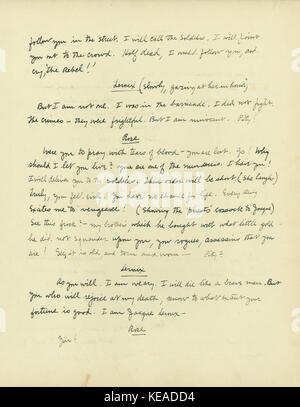 follow you in the street. I will call the soldiers. I will point
you out to the crowd. Half dead, I would follow you, and
cry, "the Rebel!"
Leroux (Slowly, gazing at her in horror)
But I am not one. I was in the barricade. I did not fight.
The crimes - they were frightful. But I am innocent. Pity!
Rose
Were you to pray with tears of blood - you are lost. Go! Why
should I let you live? You are one of the murderers. I have you!
I will deliver you to the soldiers. The order will be short (She laughs)
Truly, you fell
you have no chance for life. Every thing
excites me to vengeance! (Showing the priest's cassock to Jacque)
See this frock - my brother's which he bought with what little gold
he did not squander upon you, you rogues assassins that you
are! Say it is old and torn and worn - Pity?
Leroux
As you will. I am weary. I will die like a brave man. But
you who will rejoice at my death, know to what extent your
fortune is good. I am Jacque Leroux -
Rose
You!
alamy
KEADD4